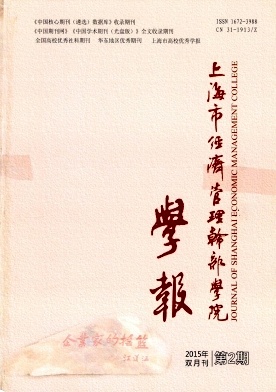 《中国核心期刊（遴选）数据库》收录期刊
《中国期刊网》《中国学术期刊（光盘版）》全文收录期刊
全国高校优秀社科期刊 华东地区优秀期刊 上海市高校优秀学报
ISSN 1672-3988
CN 31-1913/Z
上海市经济管理干部学院
JOURNAL OF SHANGHAI ECONOMIC MANAGEMENT COLLEGE
學報
企业家的摇篮
2015年
双月刊
第2期